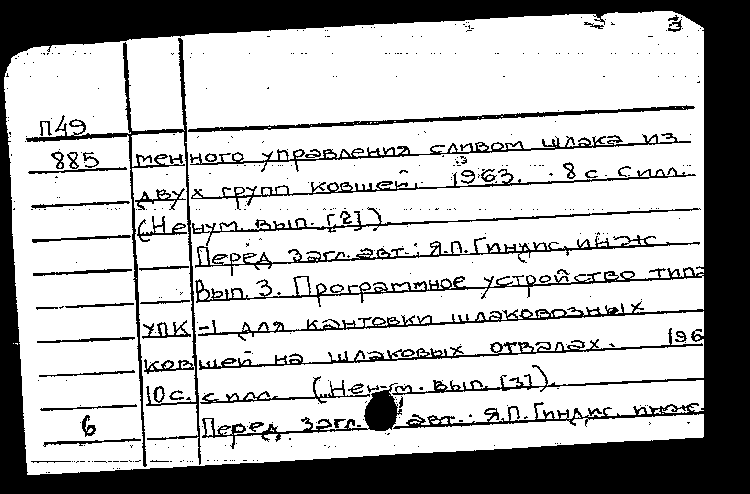 3
П49
885 менного управления сливом шлака из
двух групп ковшей. 1963. 8 с. с илл.
(Ненум. вып. [2]).
Перед загл. авт.: Я.П. Гиндис, инж.
Вып. 3. Программное устройство типа
УПК-1 для кантовки шлаковозных
ковшей на шлаковых отвалах. 196
10 с. с илл. (Ненум. вып. [3]).
6 Перед загл. авт.: Я.П. Гиндис, инж.